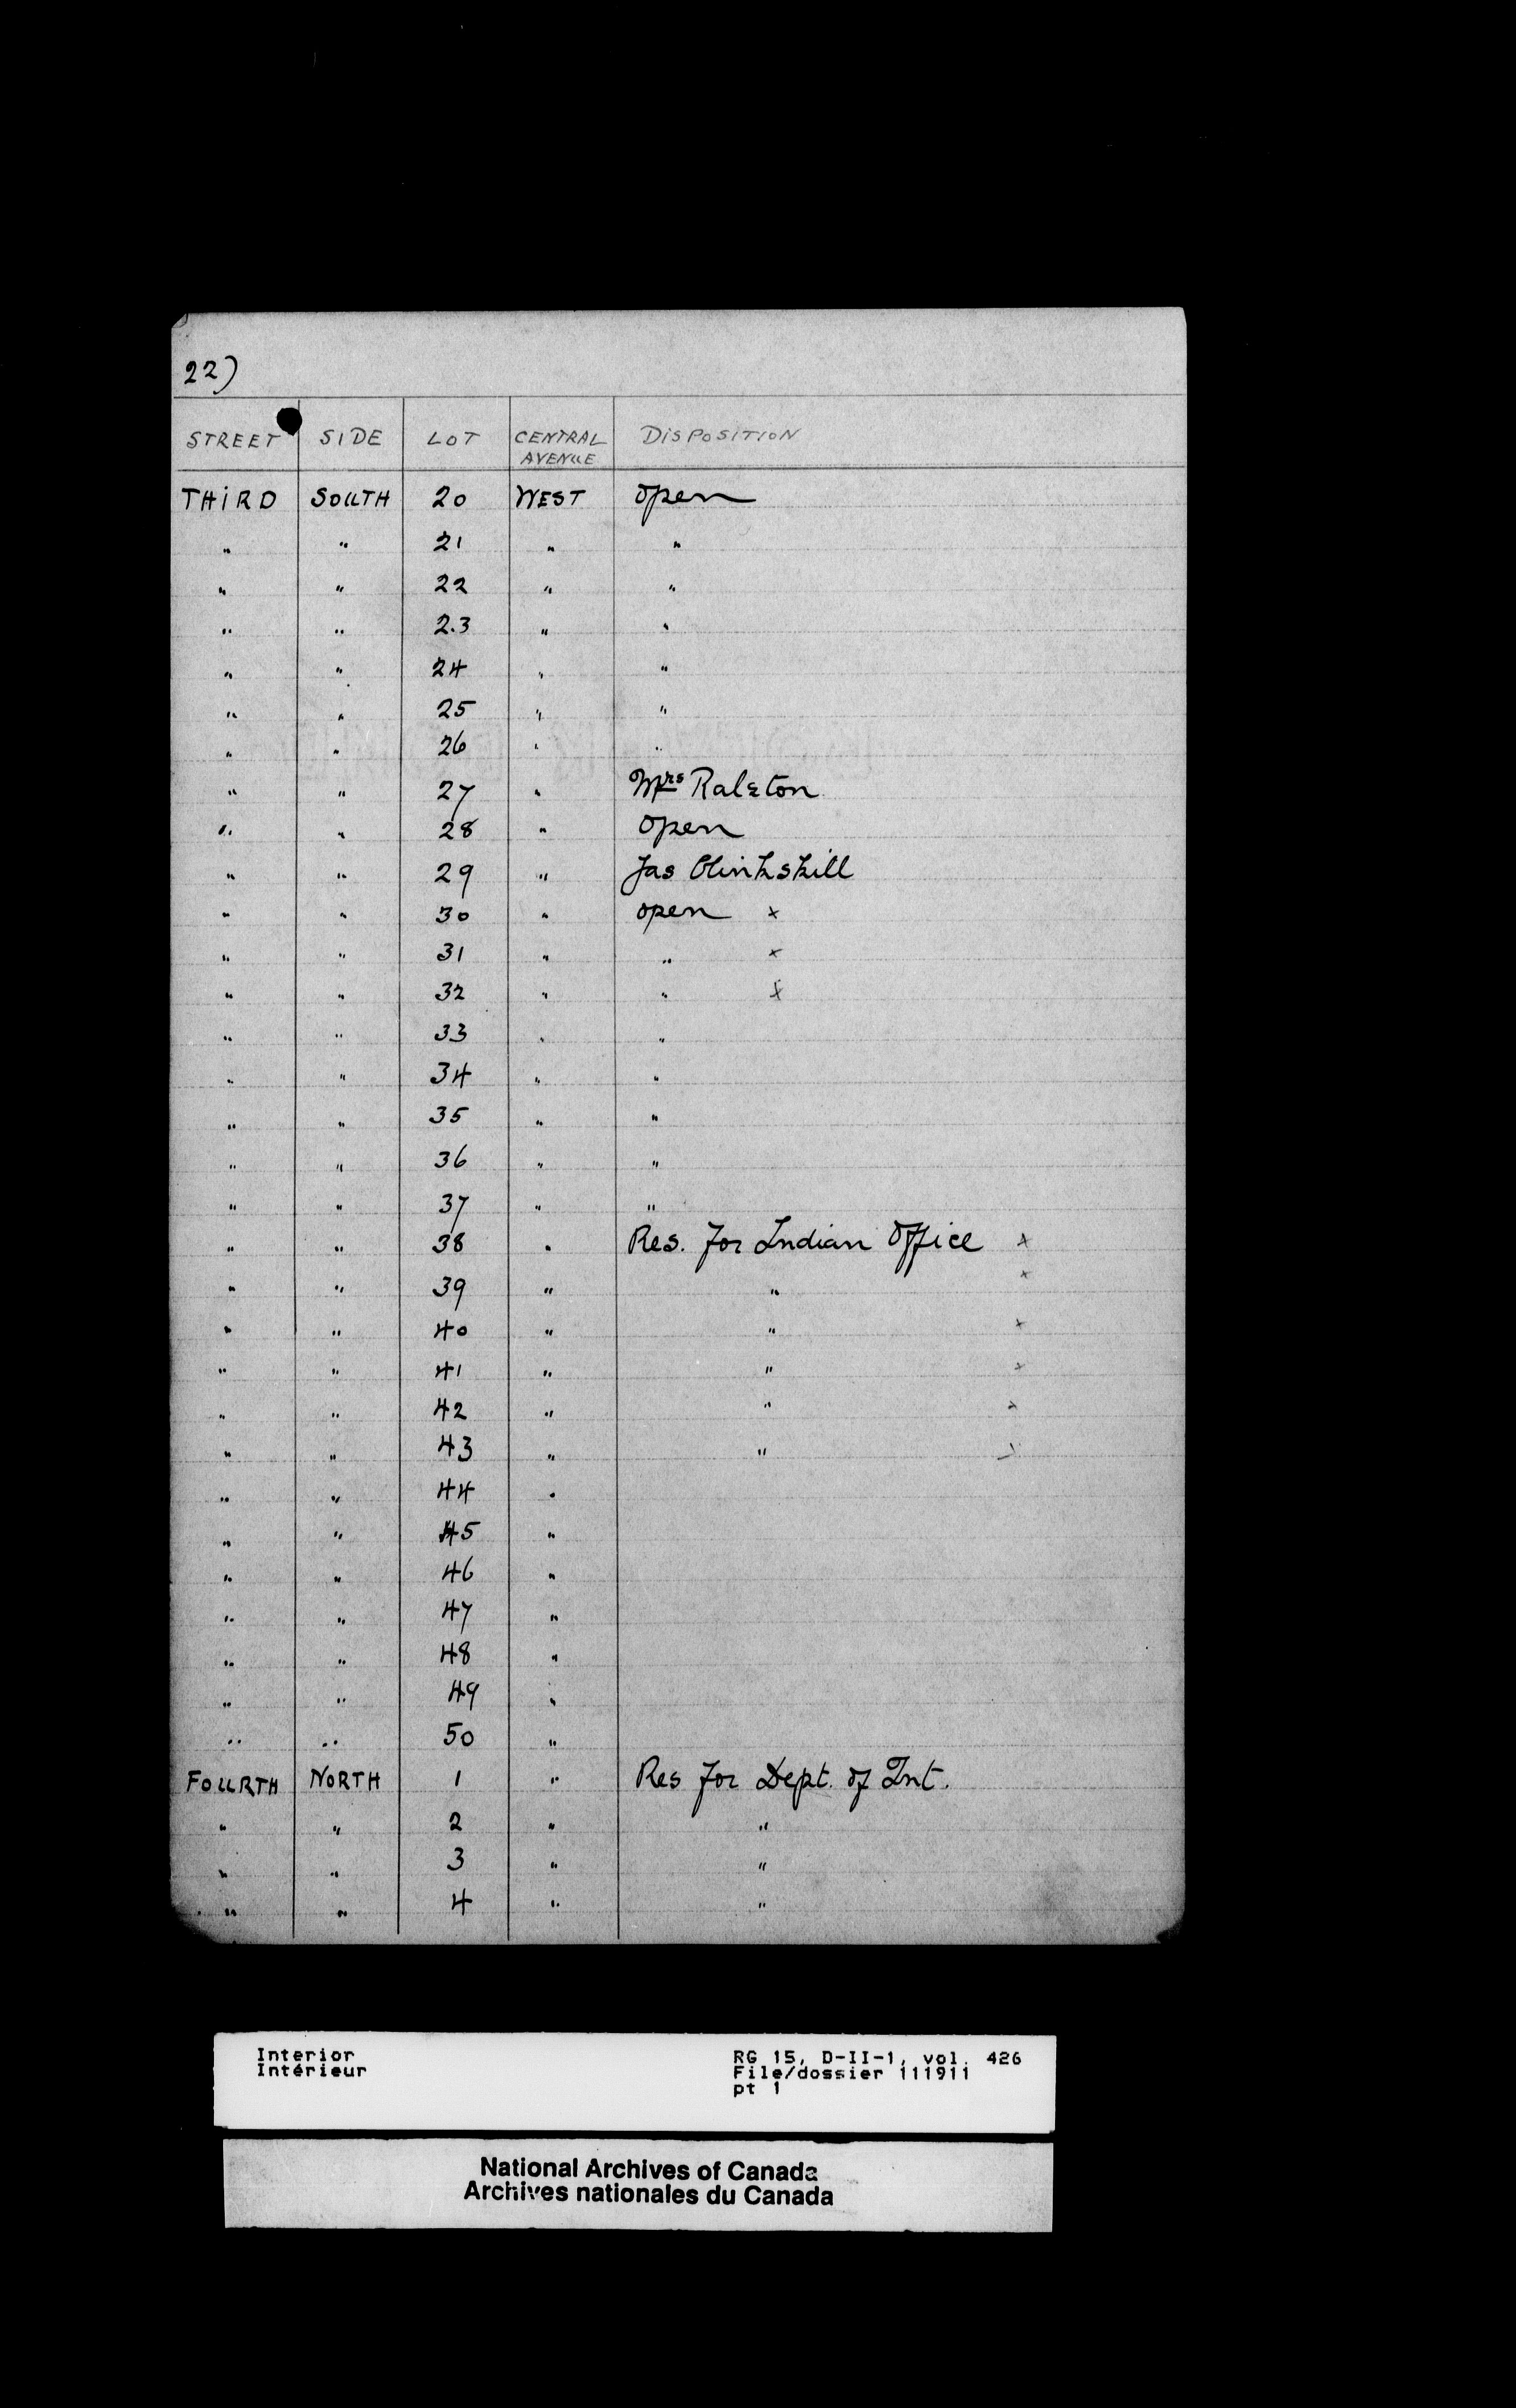 22)
STREET SIDE LOT CENTRAL AVENUE DISPOSITION
THIRD SOUTH 20 WEST open
" " 21 " "
" " 22 " "
" " 23 " "
" " 24 " "
" " 25 " "
" " 26 " "
" " 27 " Mrs Ralston
" " 28 " open
" " 29 " Jas Clinkskill
" " 30 " open x
" " 31 " " x
" " 32 " " x
" " 33 " "
" " 34 " "
" " 35 " "
" " 36 " "
" " 37 " "
" " 38 " Res. for Indian Office x
" " 39 " " x
" " 40 " " x
" " 41 " " x
" " 42 " " x
" " 43 " " x
" " 44 "
" " 45 "
" " 46 "
" " 47 "
" " 48 "
" " 49 "
" " 50 "
FOURTH NORTH 1 " Res for Dept. of Int.
" " 2 " "
" " 3 " "
" " 4 " "
Interior RG 15, D-II-1, vol. 426
Intérieur File/dossier 111911
pt 1
National Archives of Canada
Archives nationales du Canada